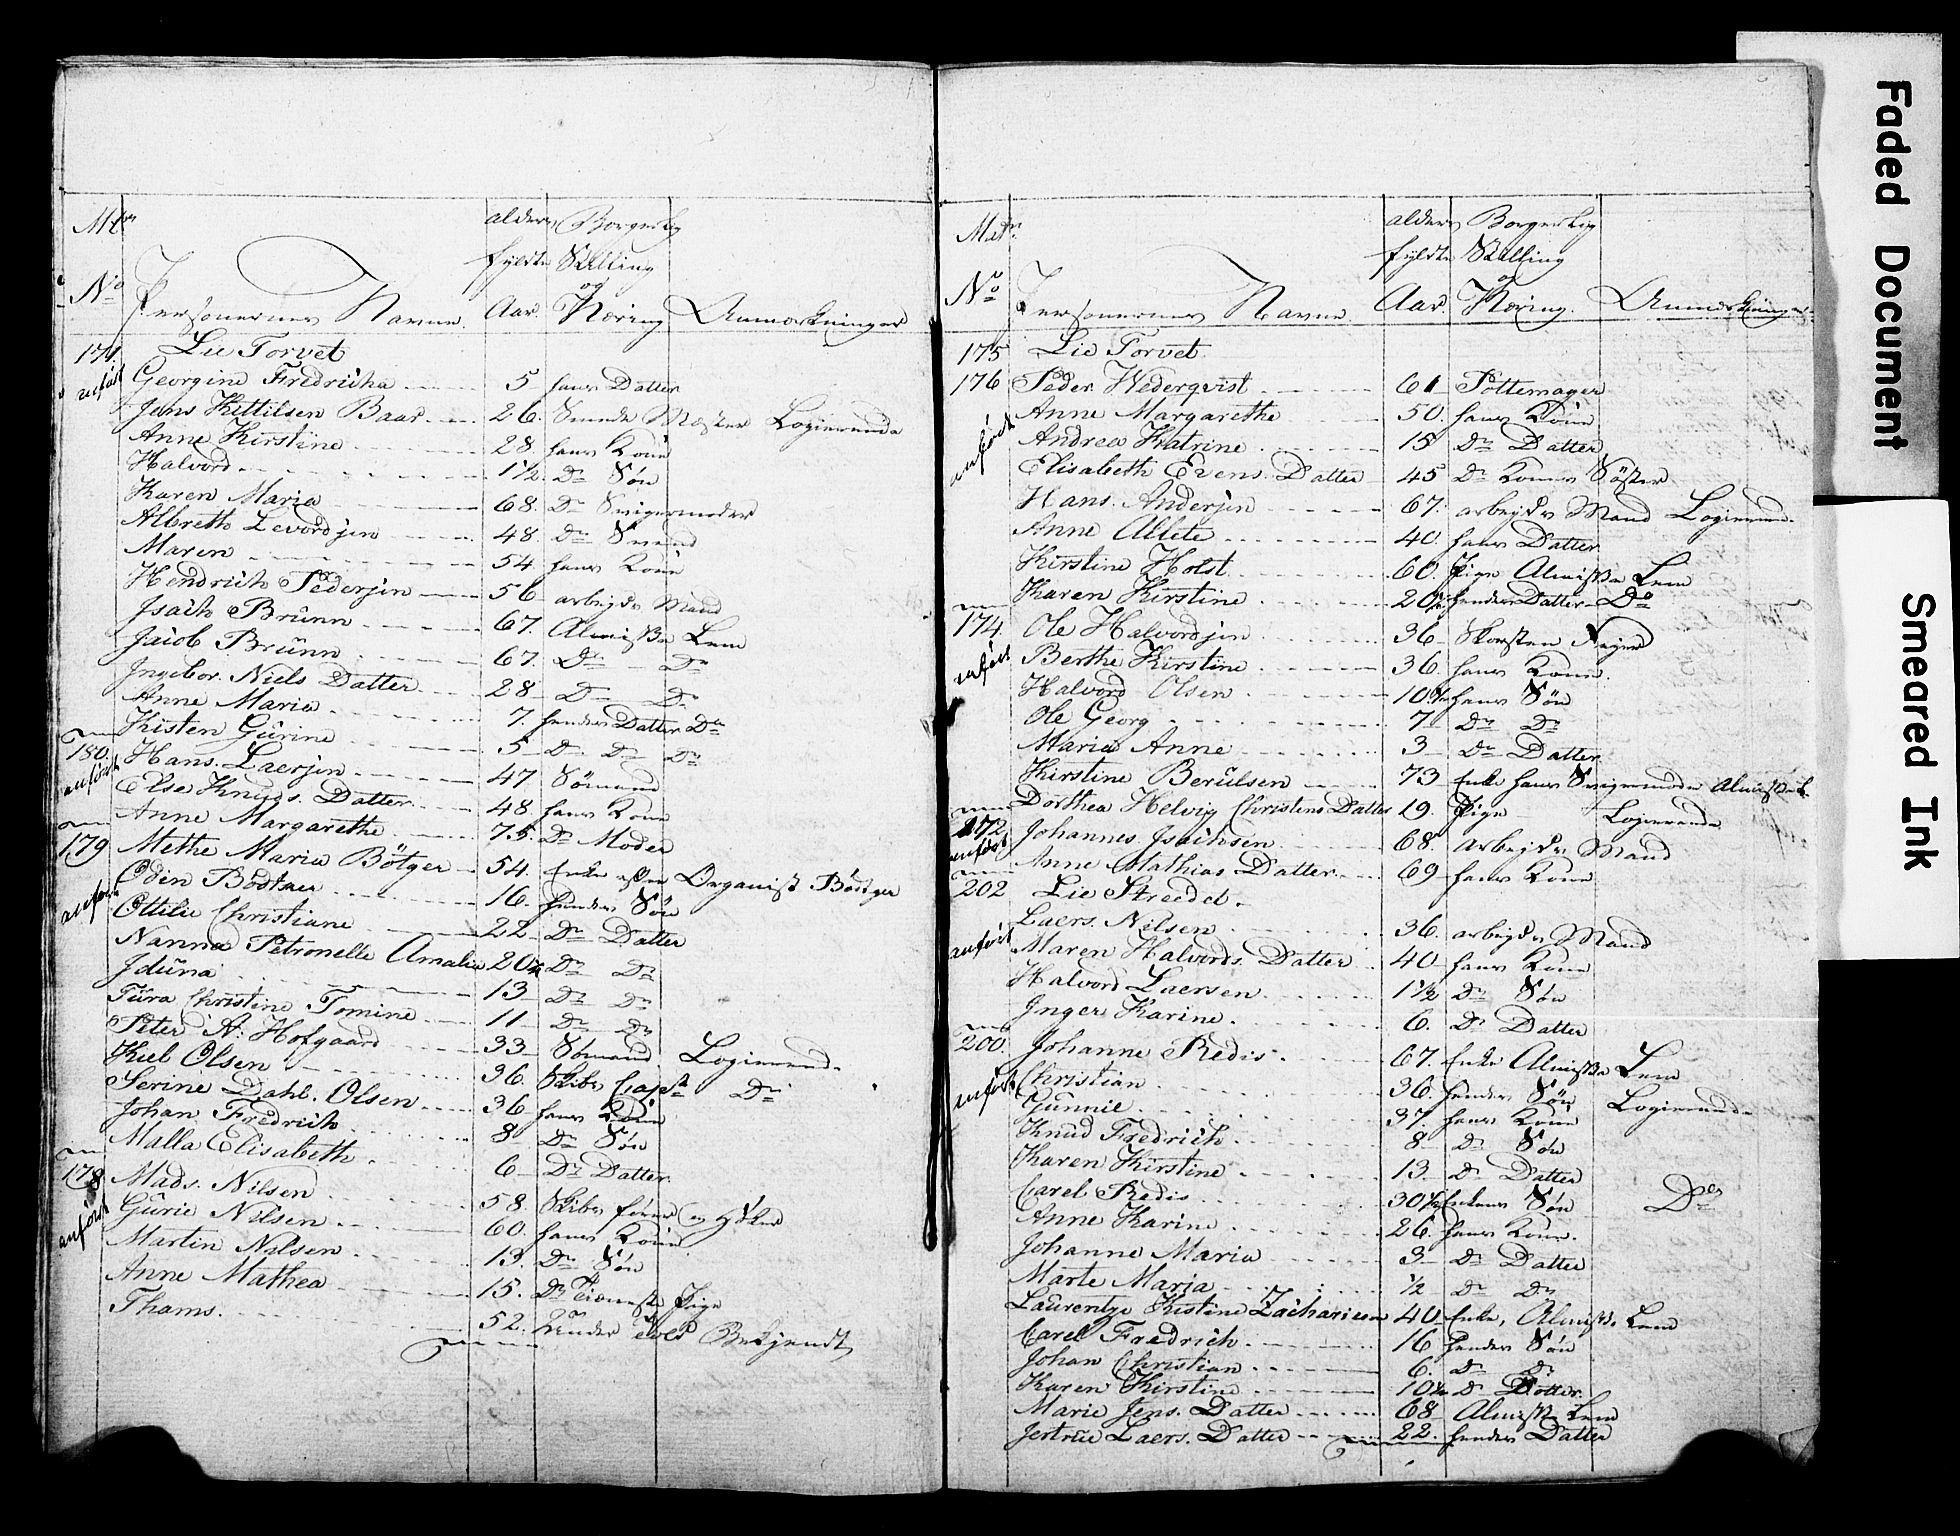 Mtr
No
Personernes Navne
alders fyldte Aar
Borgerlig Stilling og Næring
Anmærkninger
171 Lie Torvet
anført
Georgine Fredricha 5 hans Datter
Jens Kittilsen Baar 26 Smede Mester Logierende
Anne Kirstine 28 hans Kone
Halvord 1½ Do Søn
Karen Maria 68 Do Svigermoder
Albreth Levordsen 48 Do Svend
Maren 54 hans Kone
Hendrich Pedersen 56 arbeyds Mand
Isach Brünn 67 Almisse Lem
Jacob Brünn 67 Do Do
Ingebor Niels Datter 28 Do Do
Anne Maria 7 hendes Datter Do
Kisten Gurine 5 Do Do Do
180 Hans Laersen 47 Sømand
anført
Else Knuds Datter 48 hans Kone
Anne Margarethe 75 Do Moder
179 Methe Maria Bötger 54 Enke efter Organist Bödtger
anført
Odin Bödtger 16 hendes Søn
Ottilie Christiane 22 Do Datter
Nanna Petronelle Amalia 20½ Do Do
Iduna 13 Do Do
Tura Christine Tomine 11 Do Do
Peter A. Hofgaard 33 Sømand Logierend
Kiel Olsen 36 Skibs Capt Do
Serine Dahl Olsen 36 hans Kone
Johan Fredrich 8 Do Søn
Malla Elisabeth 6 Do Datter
178 Mads Nilsen 58 Skibs fører og Høker
anført
Gurie Nilsen 60 hans Kone
Martin Nilsen 13 Do Søn
Anne Mathea 15 Do Tieneste Pige
Thams 52 Bekjendt
Matr
No
Personernes Navne
alders fyldte Aar
Borgerlig Stilling og Næring
Anmærkninger
175 Lie Torvet
176 Peder Wederqvist 61 Pottemager
anført
Anne Margarethe 50 hans Kone
Andrea Katrine 15 Do Datter
Elisabeth Evens Datter 45 Do Kones Söster
Hans Andersen 67 arbeyds Mand Logierend
Anne Allete 40 hans Datter
Kirstine Holst 60 Pige Almisse Lem
Karen Kirstine 20½ hendes Datter Do
174 Ole Halvordsen 36 Skorsten Feyer
anført
Berthe Kirstine 36 hans Kone
Halvord Olsen 10½ hans Søn
Ole Georg 7 Do Do
Maria Anne 3 Do Datter
Kirstine Berulsen 73 Enke hans Svigermoder Almisse L
Dorthea Helvig Christens Datter 19 Pige Logierende
172 Johannes Isachsen 68 arbeyds Mand
anført
Anne Mathias Datter 69 hans Kone
202 Lie Strædet
Laers Nilsen 36 arbeyds Mand
anført
Maren Halvords Datter 40 hans Kone
Halvord Laersen 1½ Do Søn
Inger Karine 6 Do Datter
200 Johanne Redis 67 Enke Almisse Lem
anført
Christian 36 hendes Søn Logierende
Gunnil 37 hans Kone
Knud Fredrich 8 Do Søn
Karen Kirstine 13 Do Datter
Carel Redis 30½ Enkens Søn Do
Anne Karine 26 hans Kone
Johanne Maria 3 Do Datter
Marte Maria ½ Do Do
Laurentze Kistine Zachariesen 40 Enke, Almisse Lem
Carel Fredrich 16 hendes Søn
Johan Christian 6 Do Do
Karen Kirstine 10½ Do Datter
Marie Jens Datter 68 Almisse Lem
Jertrue Laers Datter 22 hendes Datter
Faded Document
Smeared Ink